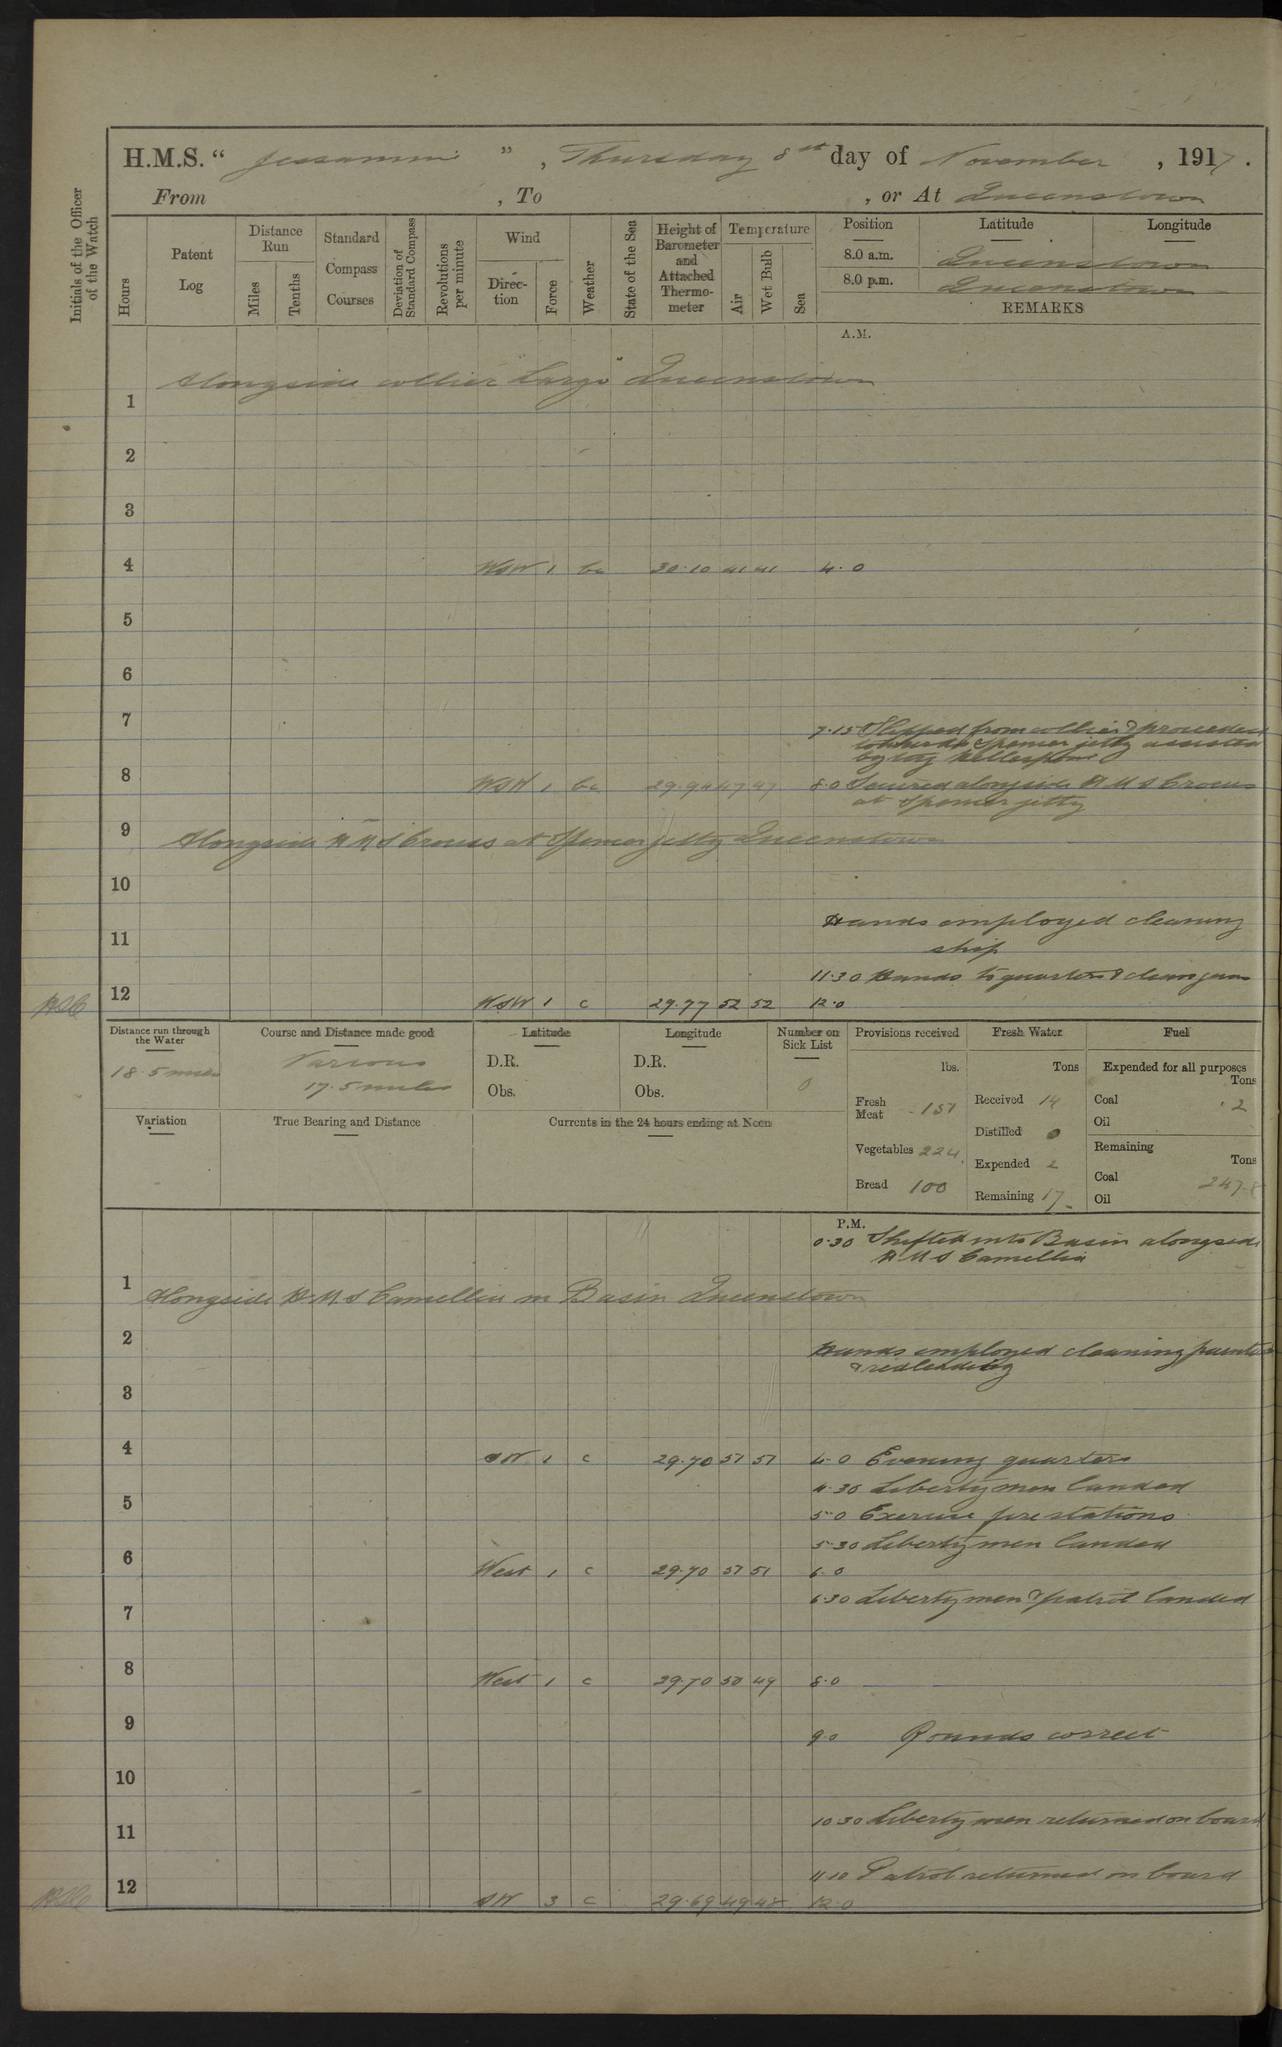 H.M.S. " Jessamine ", Thursday 8th day of November, 1917.
From , To , or At Queenstown
Initials of the Officer of the Watch
Hours
Patent Log
Distance Run
Miles
Tenths
Standard Compass Courses
Deviation of Standard Compass
Revolutions per minute
Wind
Direction
Force
Weather
State of the Sea
Height of Barometer and Attached Thermometer
Temperature
Air
Wet Bulb
Sea
Position Latitude Longitude
8.0 a.m. Queenstown
8.0 p.m. Queenstown
REMARKS
A.M.
Alongside collier "Largo" Queenstown
1
2
3
4 WSW 1 bc 30.10 41 41 4.0
5
6
7
7.15 Slipped from collier & proceeded
towards Spencer jetty assisted
by tug
8 WSW 1 bc 29.94 47 47 8.0 Secured alongside H M S Crocus
at Spencer jetty
9
Alongside H M S Crocus at Spencer jetty Queenstown
10
Hands employed cleaning
11 ship
11.30 Hands to quarters & clean guns
12 WSW 1 c 29.77 52 52 12.0
Distance run through the Water
18.5 miles
Course and Distance made good
Various
17.5 miles
Latitude
D.R.
Obs.
Longitude
D.R.
Obs.
Number on Sick List
0
Provisions received
lbs.
Fresh Meat 151
Vegetables 224
Bread 100
Fresh Water
Tons
Received 14
Distilled 0
Expended 2
Remaining 17
Fuel
Expended for all purposes
Tons
Coal .2
Oil
Remaining
Tons
Coal 247.8
Oil
Variation
True Bearing and Distance
Currents in the 24 hours ending at Noon
P.M.
0.30 Shifted into Basin alongside
H M S Camellia
1
Alongside H.M.S Camellia in Basin Queenstown
2
Hands employed cleaning paintwork
& redleading
3
4 SW 1 c 29.70 51 51 4.0 Evening quarters
4.30 Liberty men landed
5
5.0 Exercise fire stations
5.30 Liberty men landed
6 West 1 c 29.70 51 51 6.0
6.30 Liberty men & patrol landed
7
8 West 1 c 29.70 50 49 8.0
9
9.0 Rounds correct
10
10.30 Liberty men returned on board
11
11.10 Patrol returned on board
12 SW 3 c 29.69 49 48 12.0